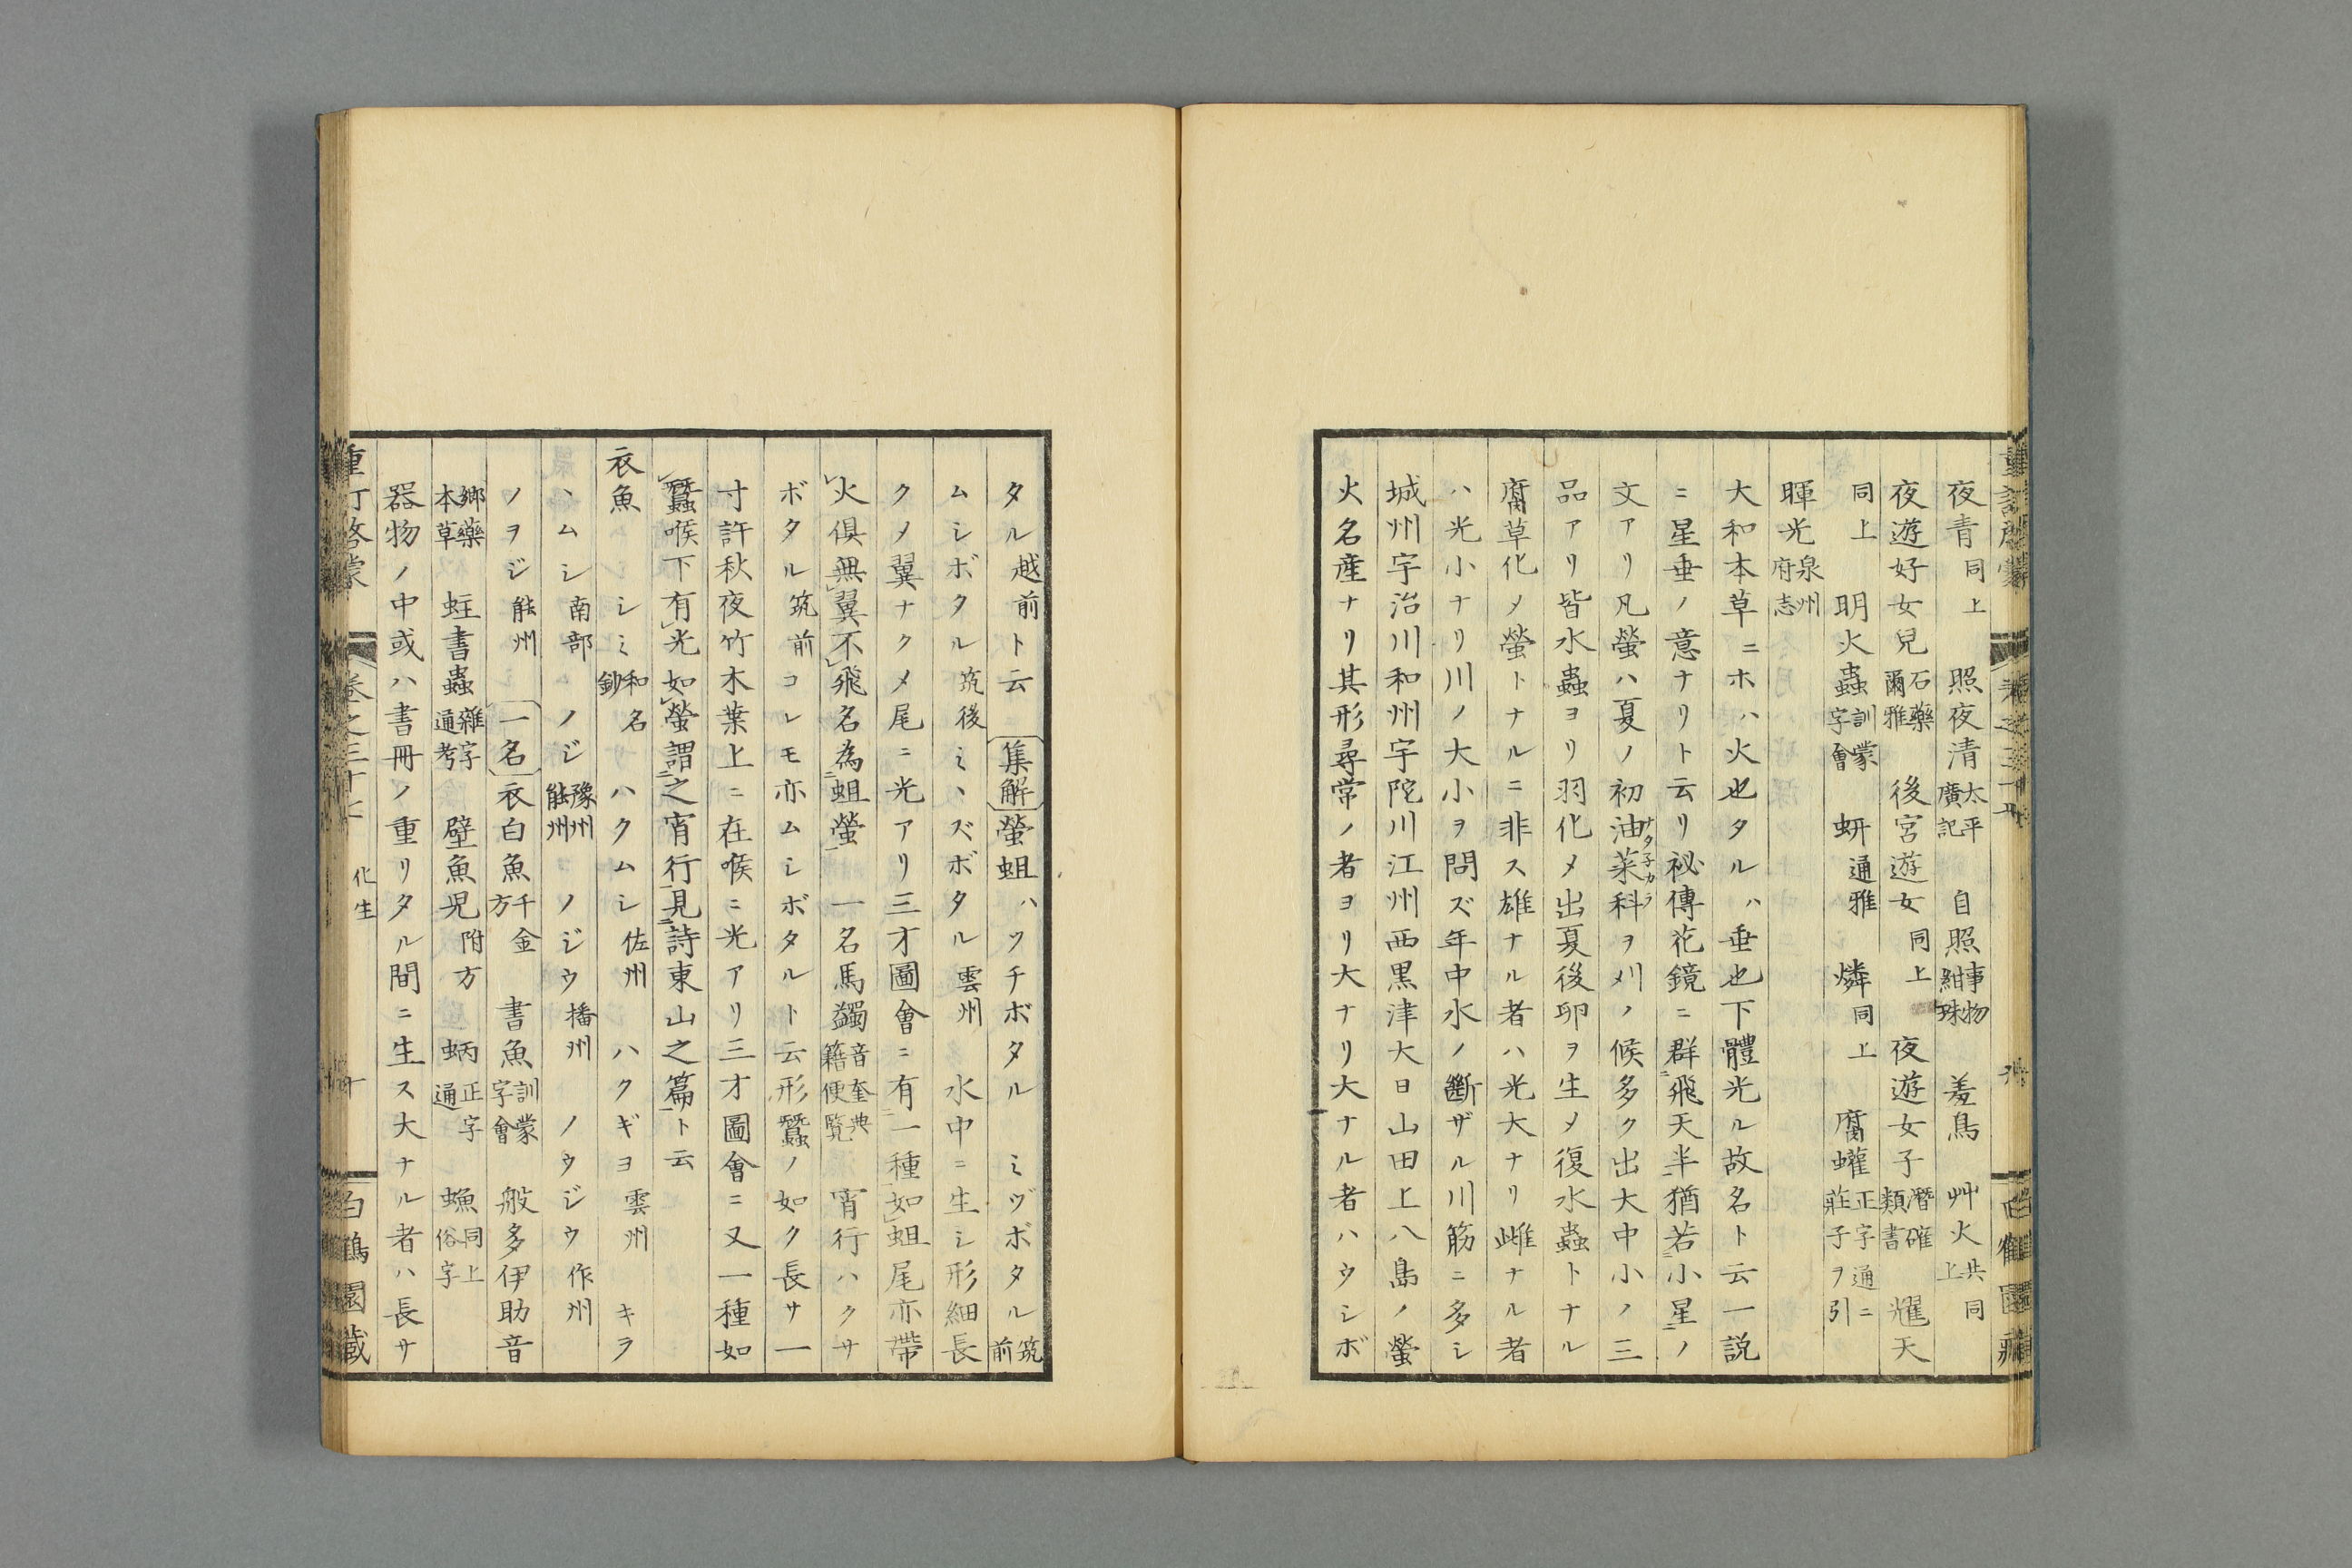 夜青同上 照夜清太平廣記 自照事物紺珠 羞鳥 艸火共同上
夜遊好女兒石藥爾雅 後宮遊女同上 夜遊女子潛確類書 燿天
同上 明火蟲訓蒙字會 蚈通雅 燐同上 腐蠸正字通ニ莊子ヲ引
暉光泉州府志
大和本草ニホハ火也タルハ垂也下體光ル故名ト云一説
ニ星垂ノ意ナリト云リ祕傳花鏡ニ群飛天半猶若小星ノ
文アリ凡螢ハ夏ノ初油菜科ヲ刈ノ候多ク出大中小ノ三
品アリ皆水蟲ヨリ羽化メ出夏後卵ヲ生メ復水蟲トナル
腐草化メ螢トナルニ非ス雄ナル者ハ光大ナリ雌ナル者
ハ光小ナリ川ノ大小ヲ問ズ年中水ノ斷ザル川筋ニ多シ
城州宇治川和州宇陀川江州西黒津大日山田上八島ノ螢
火名産ナリ其形尋常ノ者ヨリ大ナリ大ナル者ハウシボ
タル越前ト云 集解螢蛆ハツチボタル ミヅボタル筑前
ムシボタル筑後ミヽズボタル雲州 水中ニ生シ形細長
クメ翼ナクメ尾ニ光アリ三才圖會ニ有一種如蛆尾亦帶
火俱無翼不飛名為蛆螢 一名馬蠲音奎典籍便覽 宵行ハクサ
ボタル筑前コレモ亦ムシボタルト云形蠶ノ如ク長サ一
寸許秋夜竹木葉上ニ在喉ニ光アリ三才圖會ニ又一種如
蠶喉下有光如螢謂之宵行見詩東山之篇ト云
衣魚 シミ和名鈔 ハクムシ佐州 ハクギヨ雲州 キラ
ヽムシ南部 ノジ豫州能州 ノジウ播州 ノウジウ作州
ノヲジ能州 一名衣白魚千金方 書魚訓蒙字會 般多伊助音
鄉藥本草 蛀書蟲雜字通考 壁魚児附方 蛃正字通 䱷同上俗字
器物ノ中或ハ書冊ノ重リタル間ニ生ス大ナル者ハ長サ
重訂啓蒙 卷之三十七 化生 十 白鶴園藏